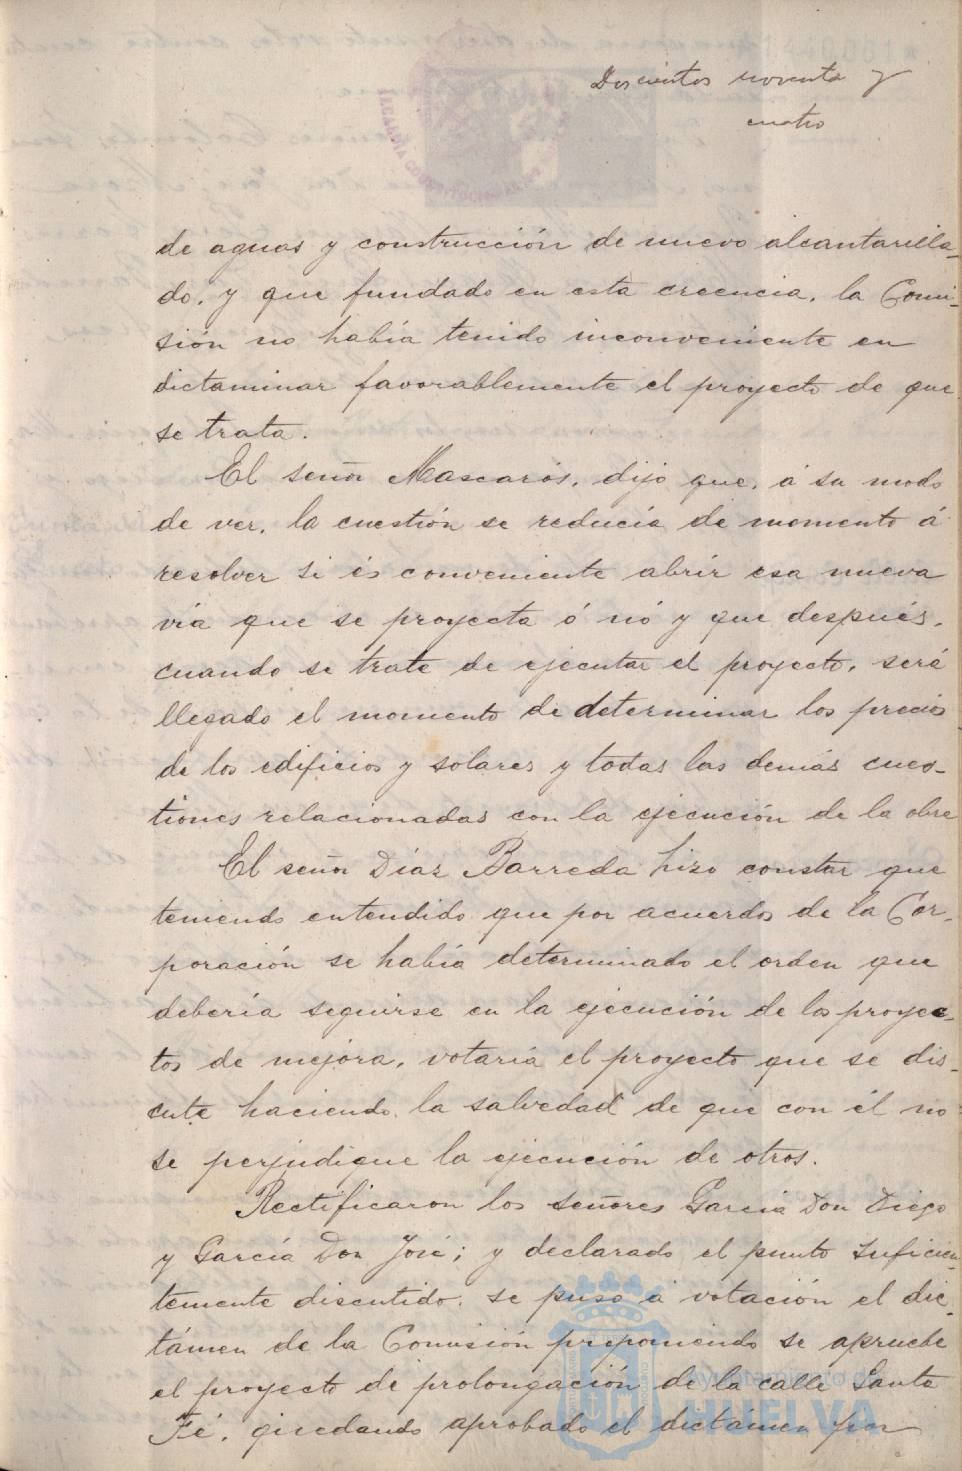 Doscientos noventa y
cuatro
de aguas y construcción de nuevo alcantarilla-
do, y que fundado en esta creencia, la Comi-
sión no había tenido inconveniente en
dictaminar favorablemente el proyecto de que
se trata.
El señor Mascarós, dijo que, á su modo
de ver, la cuestión se reducía de momento á
resolver si és conveniente abrir esa nueva
vía que se proyecta ó nó y que después,
cuando se trate de ejecutar el proyecto, será
llegado el momento de determinar los precios
de los edificios y solares y todas las demás cues-
tiones relacionadas con la ejecución de la obra
El señor Díaz Barreda hizo constar que
teniendo entendido que por acuerdos de la Cor-
poración se había determinado el orden que
debería seguirse en la ejecución de los proyec-
tos de mejora, votaría el proyecto que se dis-
cute haciendo la salvedad de que con él no
se perjudique la ejecución de otros.
Rectificaron los señores García Don Diego
y García Don José; y declarado el punto suficien-
temente discutido, se puso á votación el dic-
támen de la Comisión proponiendo se apruebe
el proyecto de prolongación de la calle Santa
Fé, quedando aprobado el dictámen por
Ayuntamiento de
HUELVA